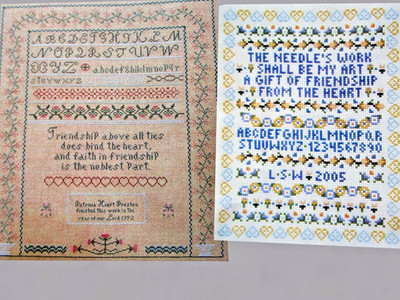 ABCDEFGHIJKLM
NOPQRSTUVW
XYZ abcdefghijklmnopqr
stuvwxyz
Friendship above all ties
does bind the heart,
and faith in friendship
is the noblest part.
Patricia Heart Preston
finished this work in the
year of our Lord
THE NEEDLE'S WORK
SHALL BE MY ART
A GIFT OF FRIENDSHIP
FROM THE HEART
ABCDEFGHIJKLMNOPQR
STUVWXYZ-1234567890
L-S-W-2005